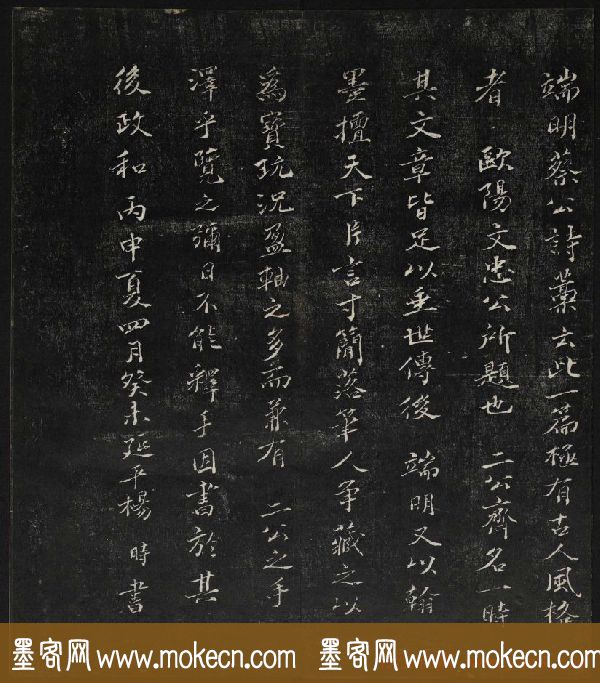 端明蔡公詩藁云此一篇極有古人風格
者 歐陽文忠公所題也 二公齊名一時
其文章皆足以垂世傳後 端明又以翰
墨擅天下片言寸簡落筆人爭藏之以
為寶玩況盈軸之多而兼有 二公之手
澤乎覽之彌日不能釋手因書於其
後政和丙申夏四月癸未延平楊 時書
墨客网 www.mokecn.com 墨客网 www.mokecn.com